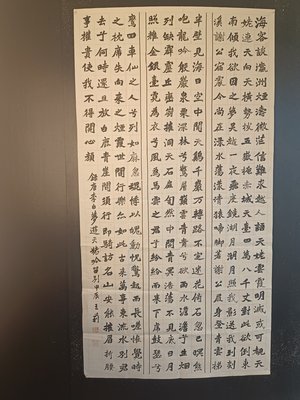 海客談瀛洲煙濤微茫信難求越人語天姥雲霞明滅或可覩天
姥連天向天橫勢拔五嶽掩赤城天臺四萬八千丈對此欲倒東
南傾我欲因之夢吳越一夜飛度鏡湖月湖月照我影送我到剡
溪謝公宿處今尚在淥水蕩漾清猿啼腳著謝公屐身登青雲梯
半壁見海日空中聞天鷄千巖萬轉路不定迷花倚石忽已暝熊
咆龍吟殷巖泉慄深林兮驚層巔雲青青兮欲雨水澹澹兮生煙
列缺霹靂丘巒崩摧洞天石扉訇然中開青冥浩蕩不見底日月
照耀金銀臺霓為衣兮風為馬雲之君兮紛紛而來下虎鼓瑟兮
鸞回車仙之人兮列如麻忽魂悸以魄動怳驚起而長嗟惟覺時
之枕席失向來之煙霞世間行樂亦如此古來萬事東流水別君
去兮何時還且放白鹿青崖間須行即騎訪名山安能摧眉折腰
事權貴使我不得開心顏
錄唐李白夢遊天姥吟留別甲辰王莉